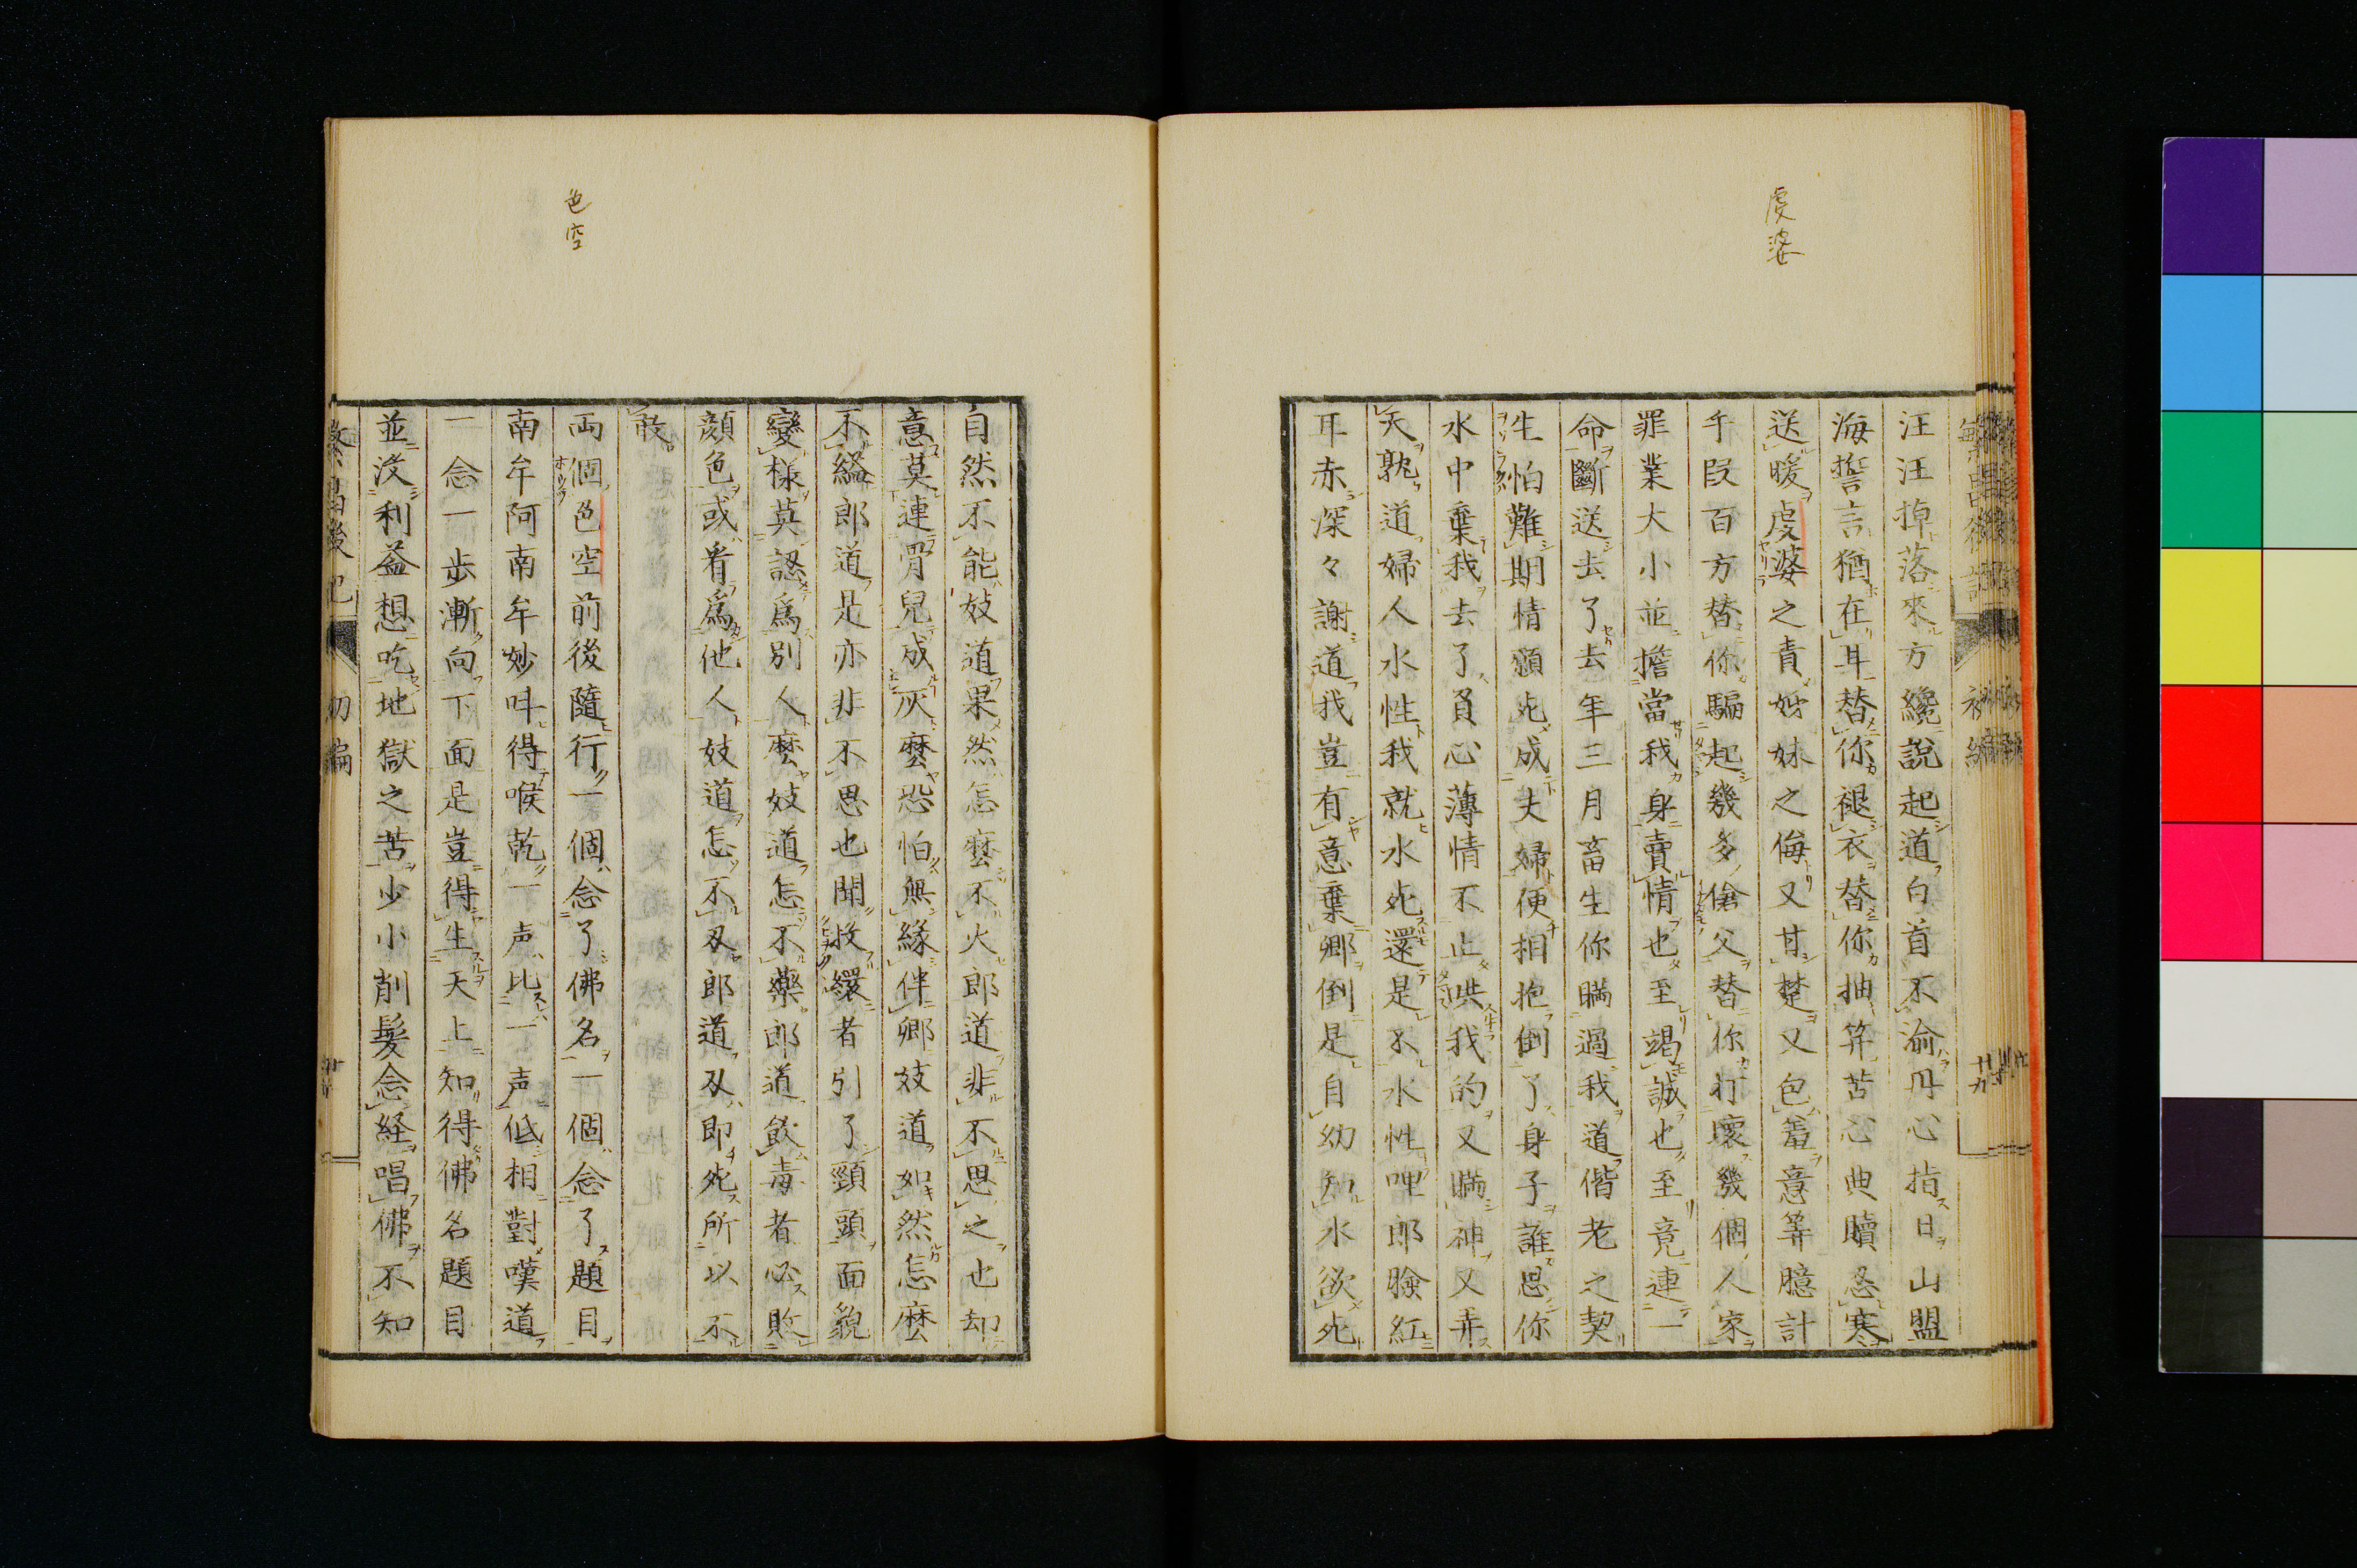 虔婆
汪汪掉落來方纔說起道白首不渝丹心指日山盟
海誓言猶在耳替你褪衣替你抽笄苦心典贖忍寒
送暖虔婆之責妙妹之侮又甘楚又包羞意筭臆計
千段百方替你騙起幾多傖父替你打壞幾個人家
罪業大小並擔當我身賣情也至竭誠也至竟連一
命斷送去了去年三月畜生你瞞過我道偕老之契
生怕難期情願死成夫婦便相抱倒了身子誰思你
水中棄我去了負心薄情不止哄我的又瞞神又弄
天孰道婦人水性我就水死還是不水性哩郎臉紅
耳赤深々謝道我豈有意棄卿倒是自幼知水欲死
色空
自然不能妓道果然怎麼不火郎道非不思之也却
意莫連骨兒成灰麼恐怕無緣伴卿妓道如然怎麼
不縊郎道是亦非不思也聞救繯者引了頸頭面貌
變樣莫認爲別人麼妓道怎不藥郎道飲毒者必敗
顔色或看爲他人妓道怎不刃郎道刃即死所以不
敢
兩個色空前後隨行一個念了佛名一個念了題目
南牟阿南牟妙呌得喉乾一声比一声低相對嘆道
一念一步漸向下面是豈得生天上知得佛名題目
並没利益想吃地獄之苦少小削髮念経唱佛不知
初編